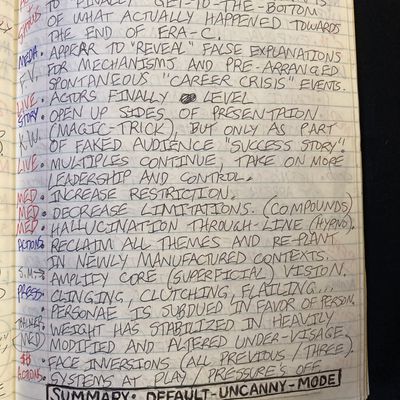 TO "FINALLY" GET-TO-THE-BOTTOM
OF WHAT ACTUALLY HAPPENED TOWARDS
THE END OF ERA-C.
MEDIA • APPEAR TO "REVEAL" FALSE EXPLANATIONS
T.V. FOR MECHANISMS AND PRE-ARRANGED
SPONTANEOUS "CAREER CRISIS" EVENTS.
LIVE • ACTORS FINALLY LEVEL
STORY • OPEN UP SIDES OF PRESENTATION
K.W. (MAGIC-TRICK), BUT ONLY AS PART
OF FAKED AUDIENCE "SUCCESS STORY".
LIVE • MULTIPLES CONTINUE, TAKE ON MORE
LEADERSHIP AND CONTROL.
MED • INCREASE RESTRICTION.
MED • DECREASE LIMITATIONS. (COMPOUNDS)
MED • HALLUCINATION THROUGH-LINE (HYPNO).
ACTIONS • RECLAIM ALL THEMES AND RE-PLANT
IN NEWLY MANUFACTURED CONTEXTS.
S.M. → • AMPLIFY CORE (SUPERFICIAL) VISION.
PRESS • CLINGING, CLUTCHING, FLAILING...
PERSONAE IS SUBDUED IN FAVOR OF PERSON.
WEIGHT HAS STABILIZED IN HEAVILY
MED MODIFIED AND ALTERED UNDER-VISAGE.
• FACE INVERSIONS (ALL PREVIOUS / THREE).
ACTIONS • SYSTEMS AT PLAY / PRESSURE'S OFF
SUMMARY: DEFAULT-UNCANNY-MODE